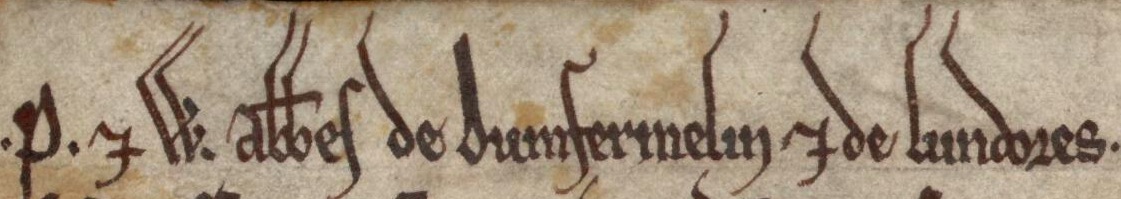 .P. ⁊ W. abb̅es de dunfermelin ⁊ de lundores.